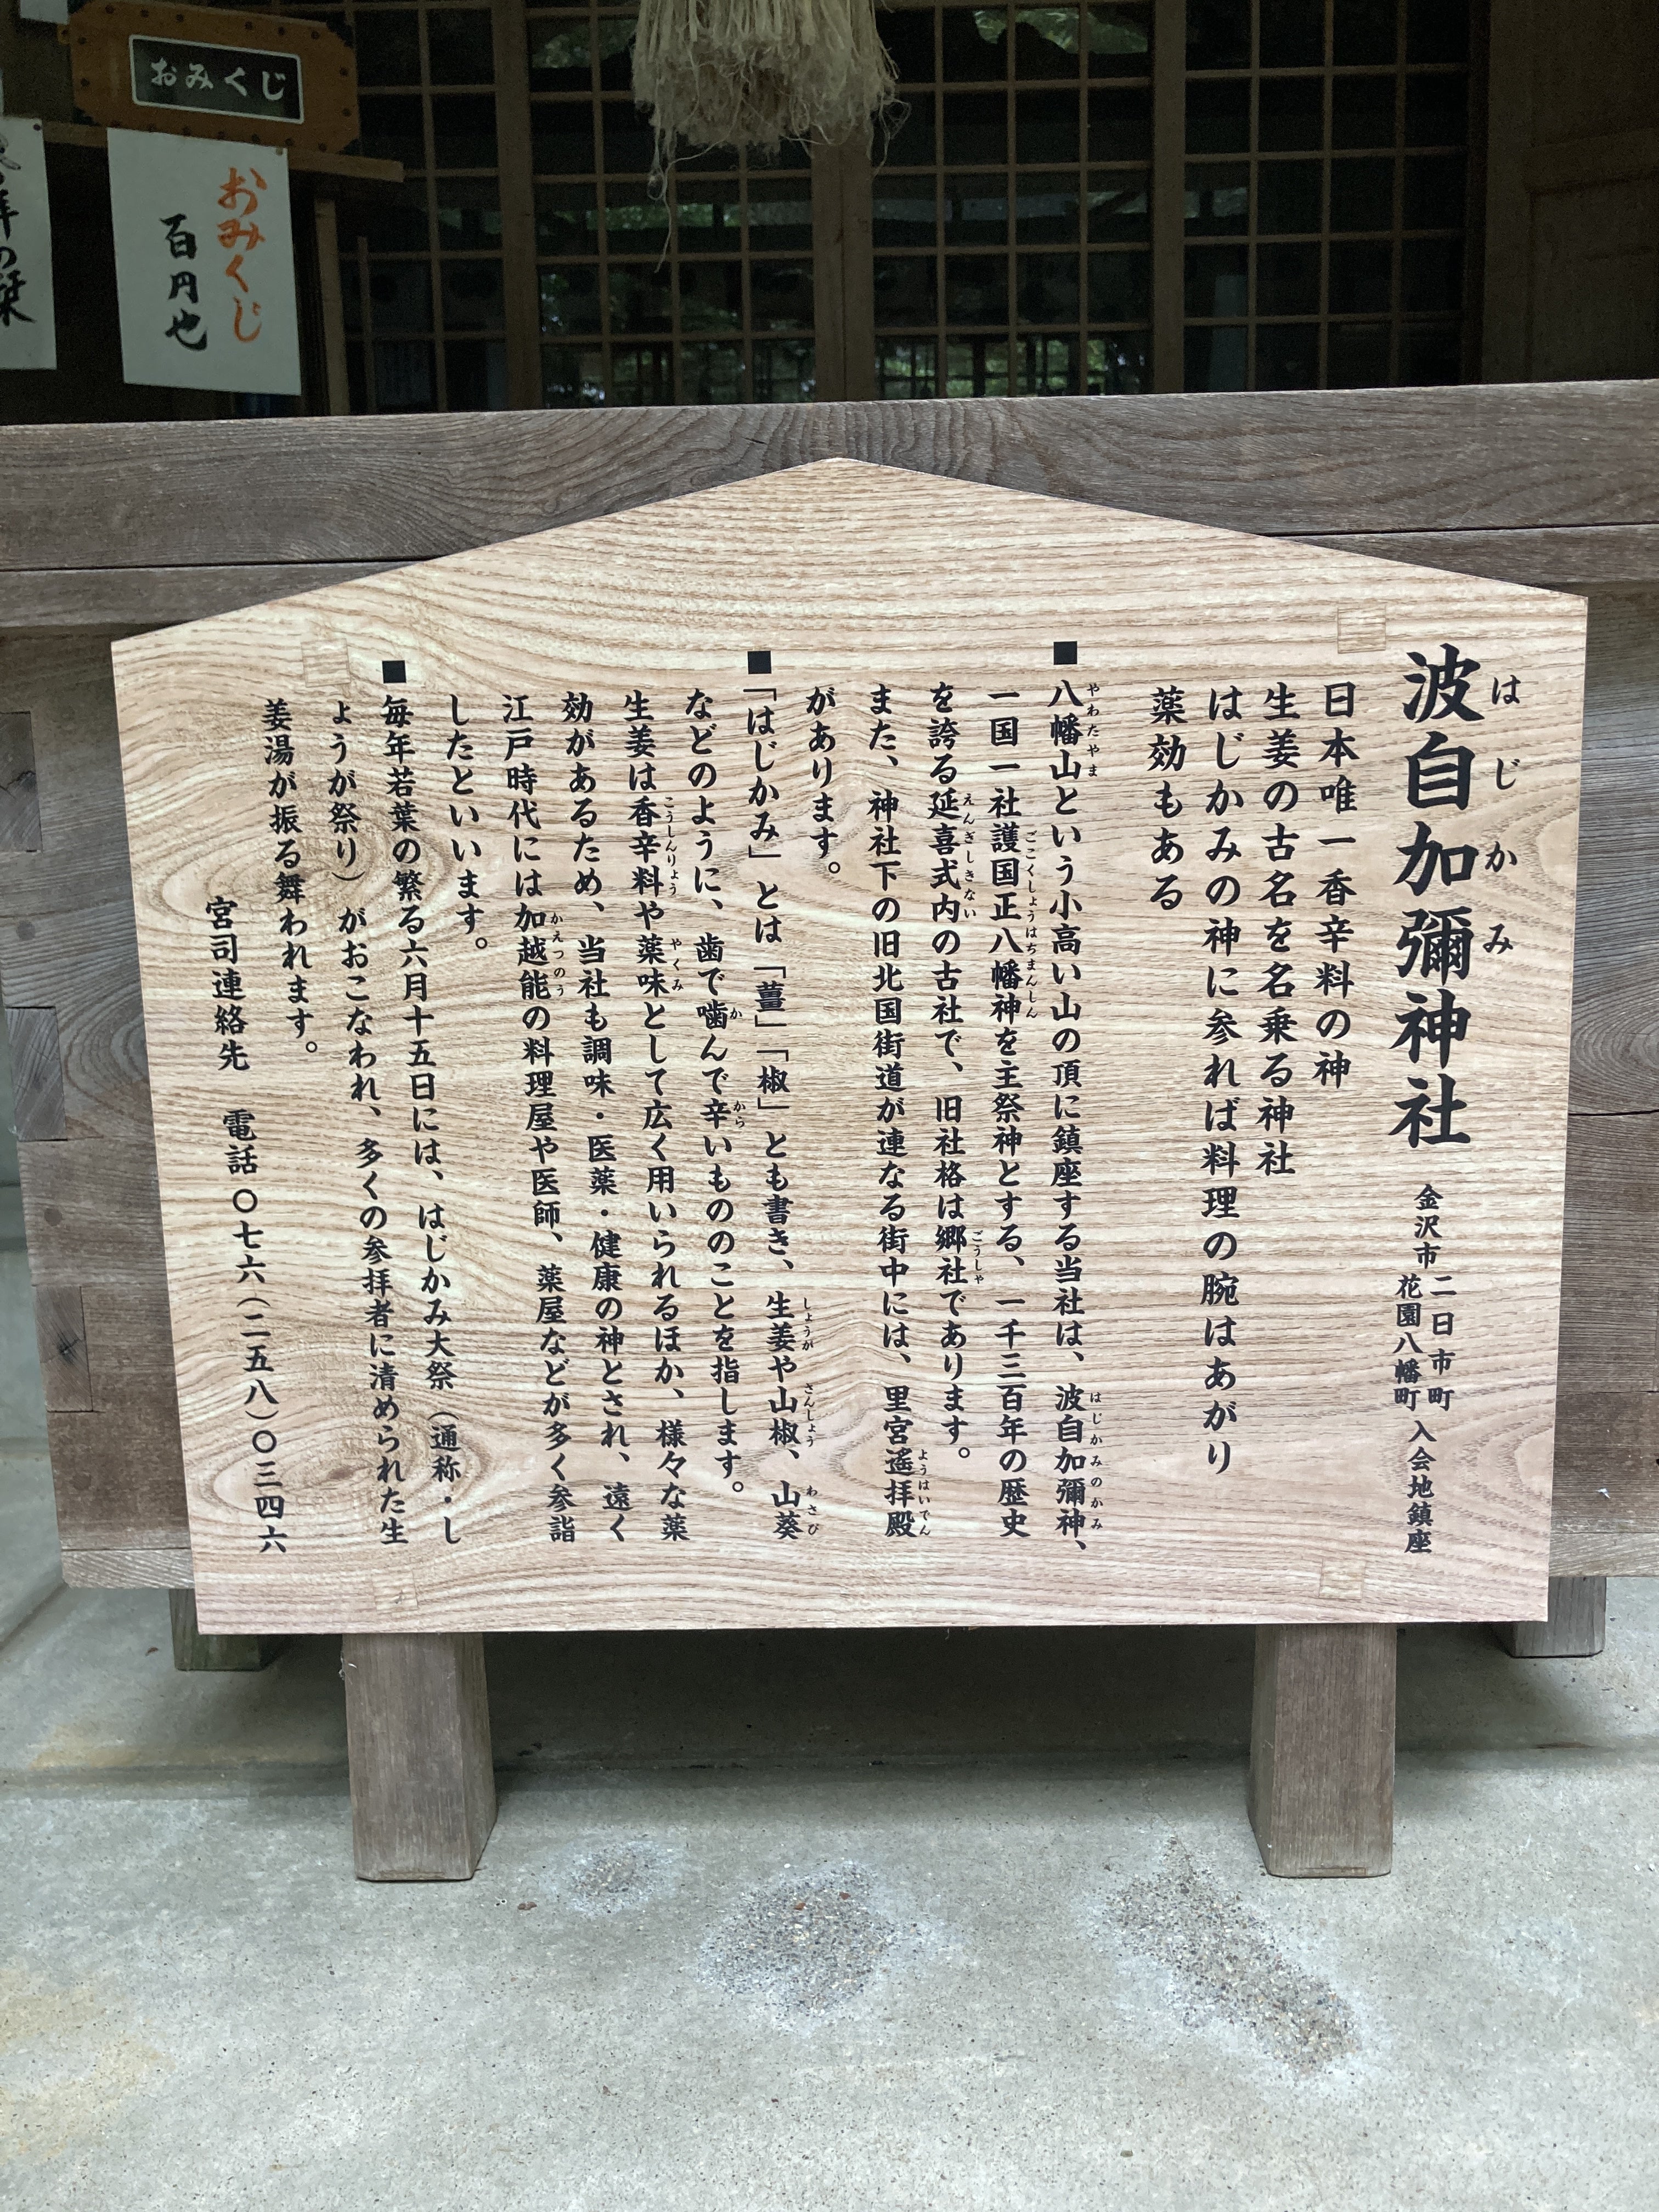 おみくじ
おみくじ
百円也
拝の栞
波自加彌神社
はじかみ
金沢市 二日市町 花園八幡町 入会地鎮座
日本唯一香辛料の神
生姜の古名を名乗る神社
はじかみの神に参れば料理の腕はあがり
薬効もある
■八幡山という小高い山の頂に鎮座する当社は、波自加彌神、
やわたやま はじかみのかみ
一国一社護国正八幡神を主祭神とする、一千三百年の歴史
ごこくしょうはちまんしん
を誇る延喜式内の古社で、旧社格は郷社であります。
えんぎしきない ごうしゃ
また、神社下の旧北国街道が連なる街中には、里宮遥拝殿
ようはいでん
があります。
■「はじかみ」とは「薑」「椒」とも書き、生姜や山椒、山葵
しょうが さんしょう わさび
などのように、歯で噛んで辛いもののことを指します。
か から
生姜は香辛料や薬味として広く用いられるほか、様々な薬
こうしんりょう やくみ
効があるため、当社も調味・医薬・健康の神とされ、遠く
江戸時代には加越能の料理屋や医師、薬屋などが多く参詣
かえつのう
したといいます。
■毎年若葉の繁る六月十五日には、はじかみ大祭（通称・し
ょうが祭り）がおこなわれ、多くの参拝者に清められた生
姜湯が振る舞われます。
宮司連絡先 電話〇七六（二五八）〇三四六